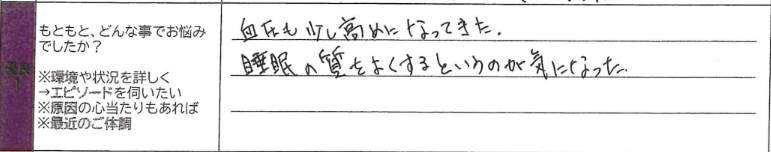 もともと、どんな事でお悩み
でしたか？
※環境や状況を詳しく
→エピソードを伺いたい
※原因の心当たりもあれば
※最近のご体調
血圧も少し高めになってきた。
睡眠の質をよくするというのが気になった。